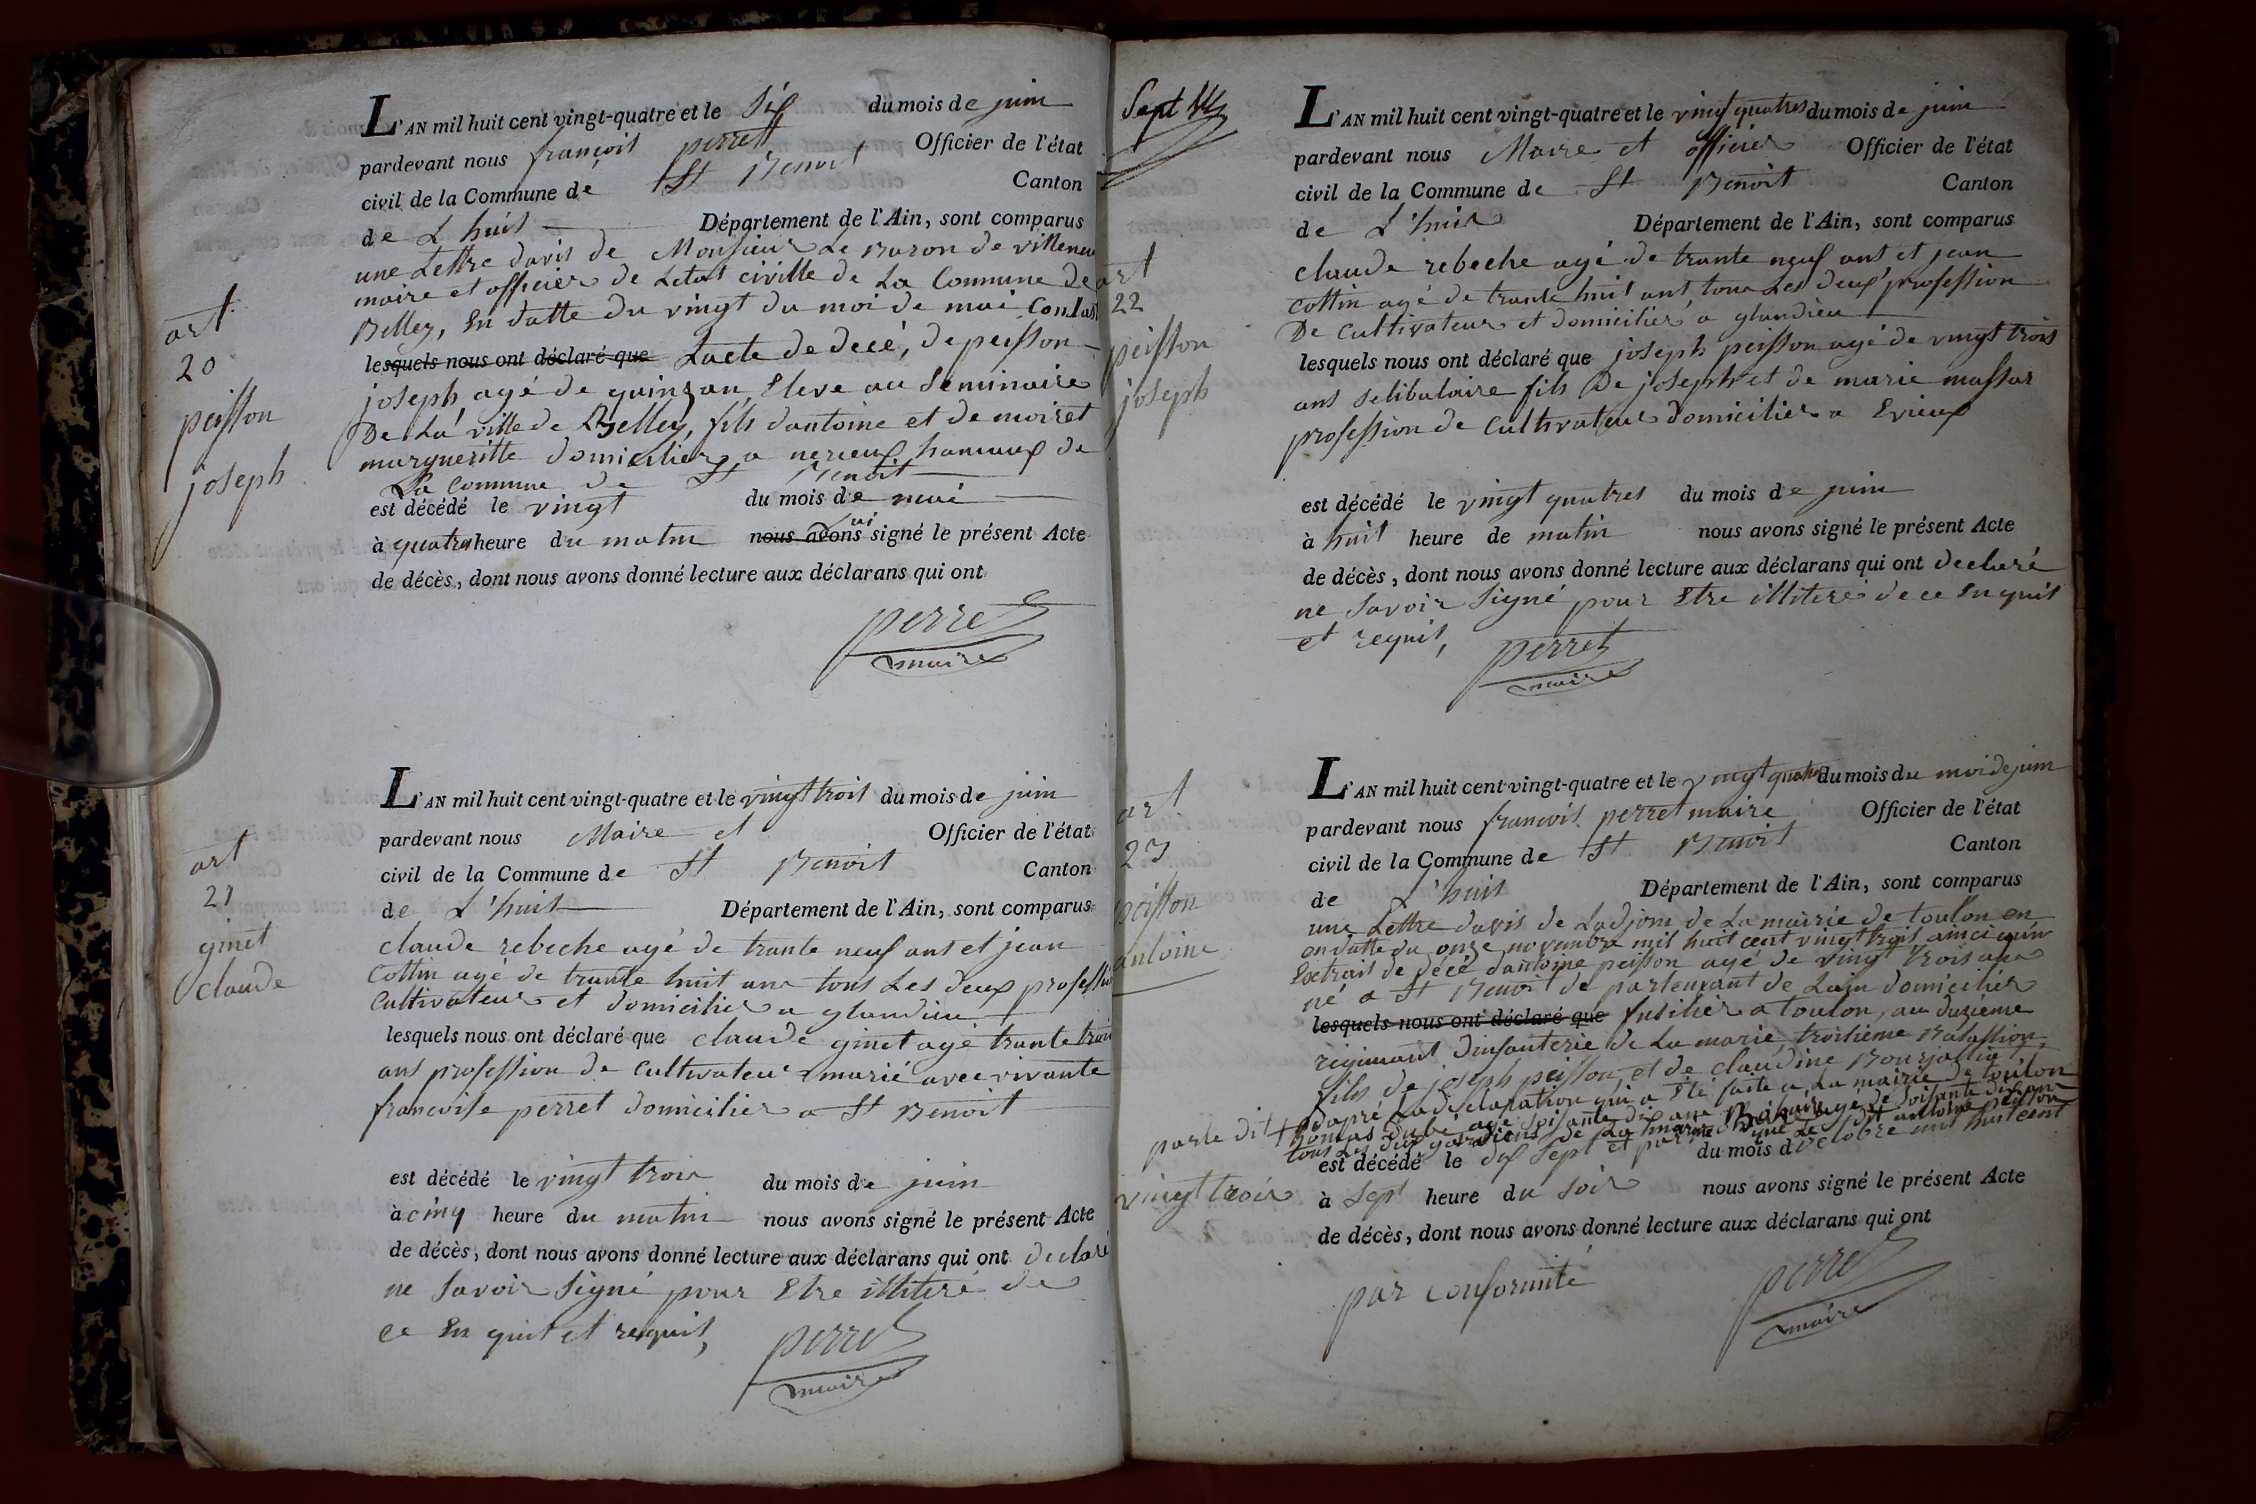 L'AN mil huit cent vingt-quatre et le six du mois de juin
pardevant nous françois perret Officier de l'état
civil de la Commune de St Benoit Canton
de L'huis Département de l'Ain, sont comparus
une Lettre davis de Monsieur Le Baron de villeneu
maire et officier de Letat civille de La Commune de
Belley, En datte du vingt du moi de mai
lesquels nous ont déclaré que Lacte de décé, de peisson
joseph agé de quinz an, Eleve au Seminaire
De La ville de Belley, fils dantoine et de moiret
margueritte domicilier a nerieux hamaux de
La Commune de St Benoit
est décédé le vingt du mois de mai
à quatre heure du matin nous avons signé le présent Acte
de décès, dont nous avons donné lecture aux déclarans qui ont
perret
maire
art
20
peisson
joseph
L'AN mil huit cent vingt-quatre et le vingt trois du mois de juin
pardevant nous Maire et Officier de l'état
civil de la Commune de St Benoit Canton
de L'huis Département de l'Ain, sont comparus
claude rebeche agé de trante neuf ans et jean
Cottin agé de trante huit ans tous Les deux professi
Cultivateur et domicilier a glandieu
lesquels nous ont déclaré que claude ginet agé trante trois
ans profession de Cultivateur marié avec vivante
francoise perret domicilier a St Benoit
est décédé le vingt trois du mois de juin
à cinq heure du matin nous avons signé le présent Acte
de décès, dont nous avons donné lecture aux déclarans qui ont declaré
ne Savoir Signé pour Etre illiteré de
ce En quit et requit,
perret
maire
art
21
ginet
claude
Sept
L'AN mil huit cent vingt-quatre et le vingt quatres du mois de juin
pardevant nous Maire et officier Officier de l'état
civil de la Commune de St Benoit Canton
de L'huis Département de l'Ain, sont comparus
claude rebeche agé de trante neuf ans et jean
cottin agé de trante huit ans, tous Les deux profession
De cultivateur et domicilier a glandieu
lesquels nous ont déclaré que joseph peisson agé de vingt trois
ans selibataire fils De joseph et de marie massar
profession de Cultivateur domicilier a Evieux
est décédé le vingt quatres du mois de juin
à huit heure de matin nous avons signé le présent Acte
de décès, dont nous avons donné lecture aux déclarans qui ont declaré
ne Savoir Signé pour Etre illiteré de ce En quit
et requit,
perret
maire
art
22
peisson
joseph
L'AN mil huit cent vingt-quatre et le vingt quatre du mois du moi de juin
pardevant nous françois perret maire Officier de l'état
civil de la Commune de St Benoit Canton
de L'huis Département de l'Ain, sont comparus
une Lettre davis de Ladjoin de La mairie de toulon en
en datte du onze novembre mil huit cent vingt trois ainci quin
Extrait de décé dantoine peisson agé de vingt trois ans
né a St Benoit de partemant de Lain domicilier
lesquels nous ont déclaré que fusilier a toulon, au duzieme
regimant d'infanterie de La marie troisieme Batallion,
fils de joseph peisson et de claudine Bourjallia
dapré La declaration qui a Eté faite a La mairie de toulon
thomas dubé agé soisante dix ans et par agé de soisante dix ans
tous Les deux gardiens de La marine que Le dit antoine peisson
est décédé le dix sept du mois doctobre mil huit cent
à Sept heure du Soir nous avons signé le présent Acte
de décès, dont nous avons donné lecture aux déclarans qui ont
par conformité
perret
maire
art
23
peisson
antoine
par le dit +
vingt trois